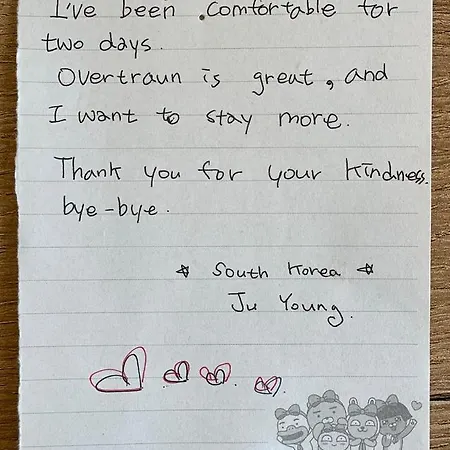 I've been comfortable for
two days.
Overtraun is great, and
I want to stay more.
Thank you for your kindness.
bye-bye.
★ South Korea ★
Ju Young.